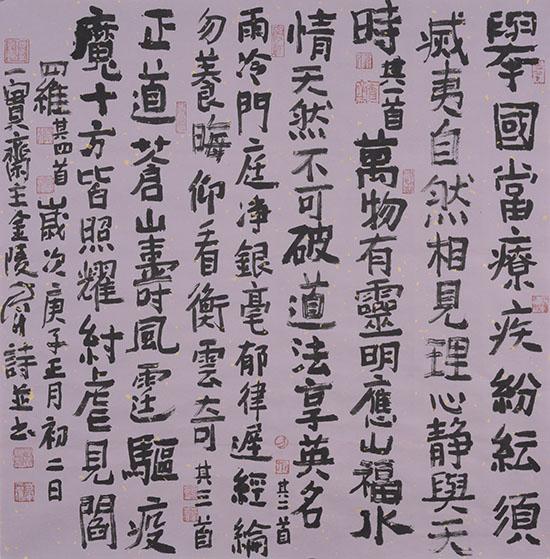 舉國當療疾紛紜須
臧夷自然相見理心靜與天
時其一首萬物有靈明應山福水
情天然不可破道法享英名其二首
雨冷門庭净銀毫郁律遲經綸
勿養晦仰看衡雲奇其三首
正道蒼山壽風霆驅疫
魔十方皆照耀紂虐見閻
羅其四首歲次庚子正月初二日
一寶齋主金陵詩並书